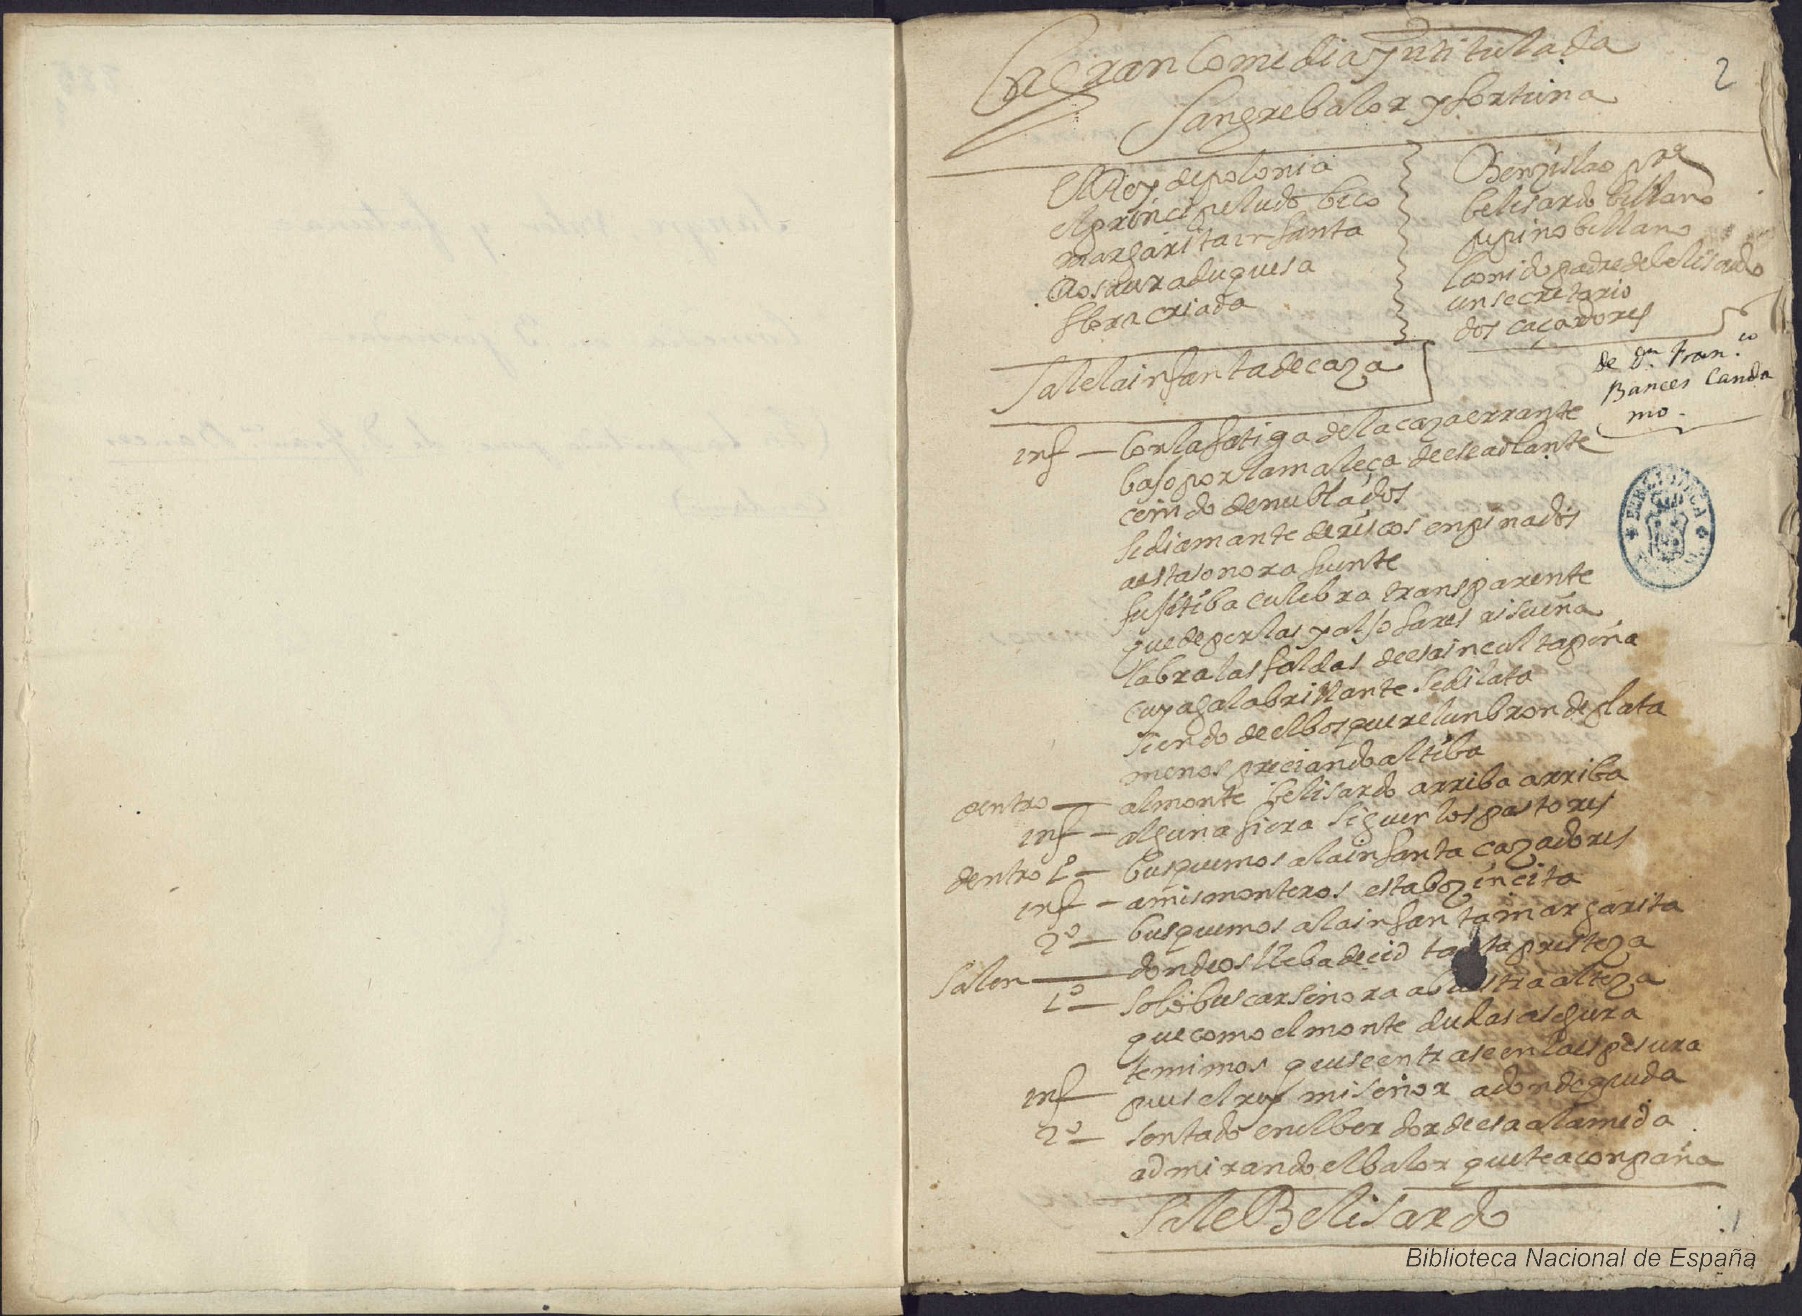 2
La Gran Comedia yntitulada
Sangre balor y fortuna
El Rey de polonia
el principe ludobico
margarita infanta
Rosaura duquesa
flora criada
Benzislao pre
belisardo billano
pepino billano
leonido padre de belisardo
un secretario
dos caçadores
de dn. Franco.
Bances Canda
mo.
Sale la infanta de caza
inf — Con la fatiga de la caza errante
bajo por la maleça de ese adlante
cenido de nublados
se diamante de riscos enpinados
a esta sonora fuente
fujitiba culebra transparente
que de perlas y aljofares risueña
labra las faldas de esa inculta peña
cuya gala brillante se dilata
siendo del bosque relunbron de plata
menospreciando altiba
dentro — al monte belisardo arriba arriba
inf — alguna fiera siguen los pastores
dentro 1º — busquemos a la infanta cazadores
inf — a mis monteros esta boz incita
2º — busquemos a la infanta margarita
Salen — donde os lleba decid tanta presteza
1º — solo buscar señora a buestra alteza
que como el monte dudas asegura
temimos que se entrase en la espesura
inf — pues el rey mi señor adonde queda
2º — sentado en el berdor de esa alameda
admirando el balor que te aconpaña
Sale Belisardo
BIBLIOTECA
Biblioteca Nacional de España